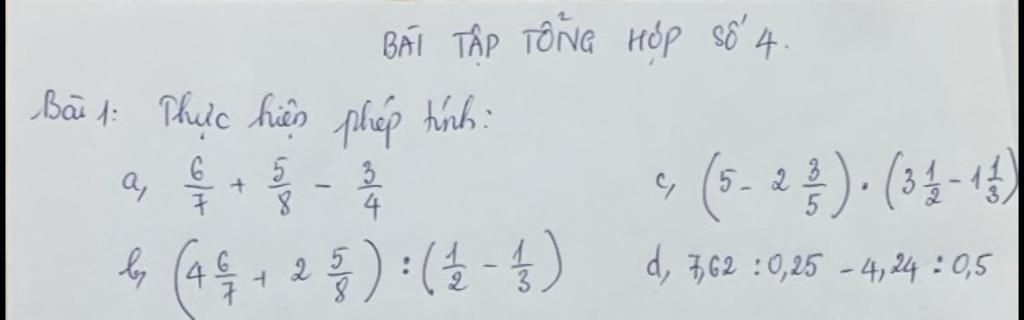 BÀI TẬP TỔNG HỢP SỐ 4.
Bài 1: Thực hiện phép tính:
a, 6/7 + 5/8 - 3/4
c, (5 - 2 3/5) . (3 1/2 - 1 1/3)
b, (4 6/7 + 2 5/8) : (1/2 - 1/3)
d, 7,62 : 0,25 - 4,24 : 0,5